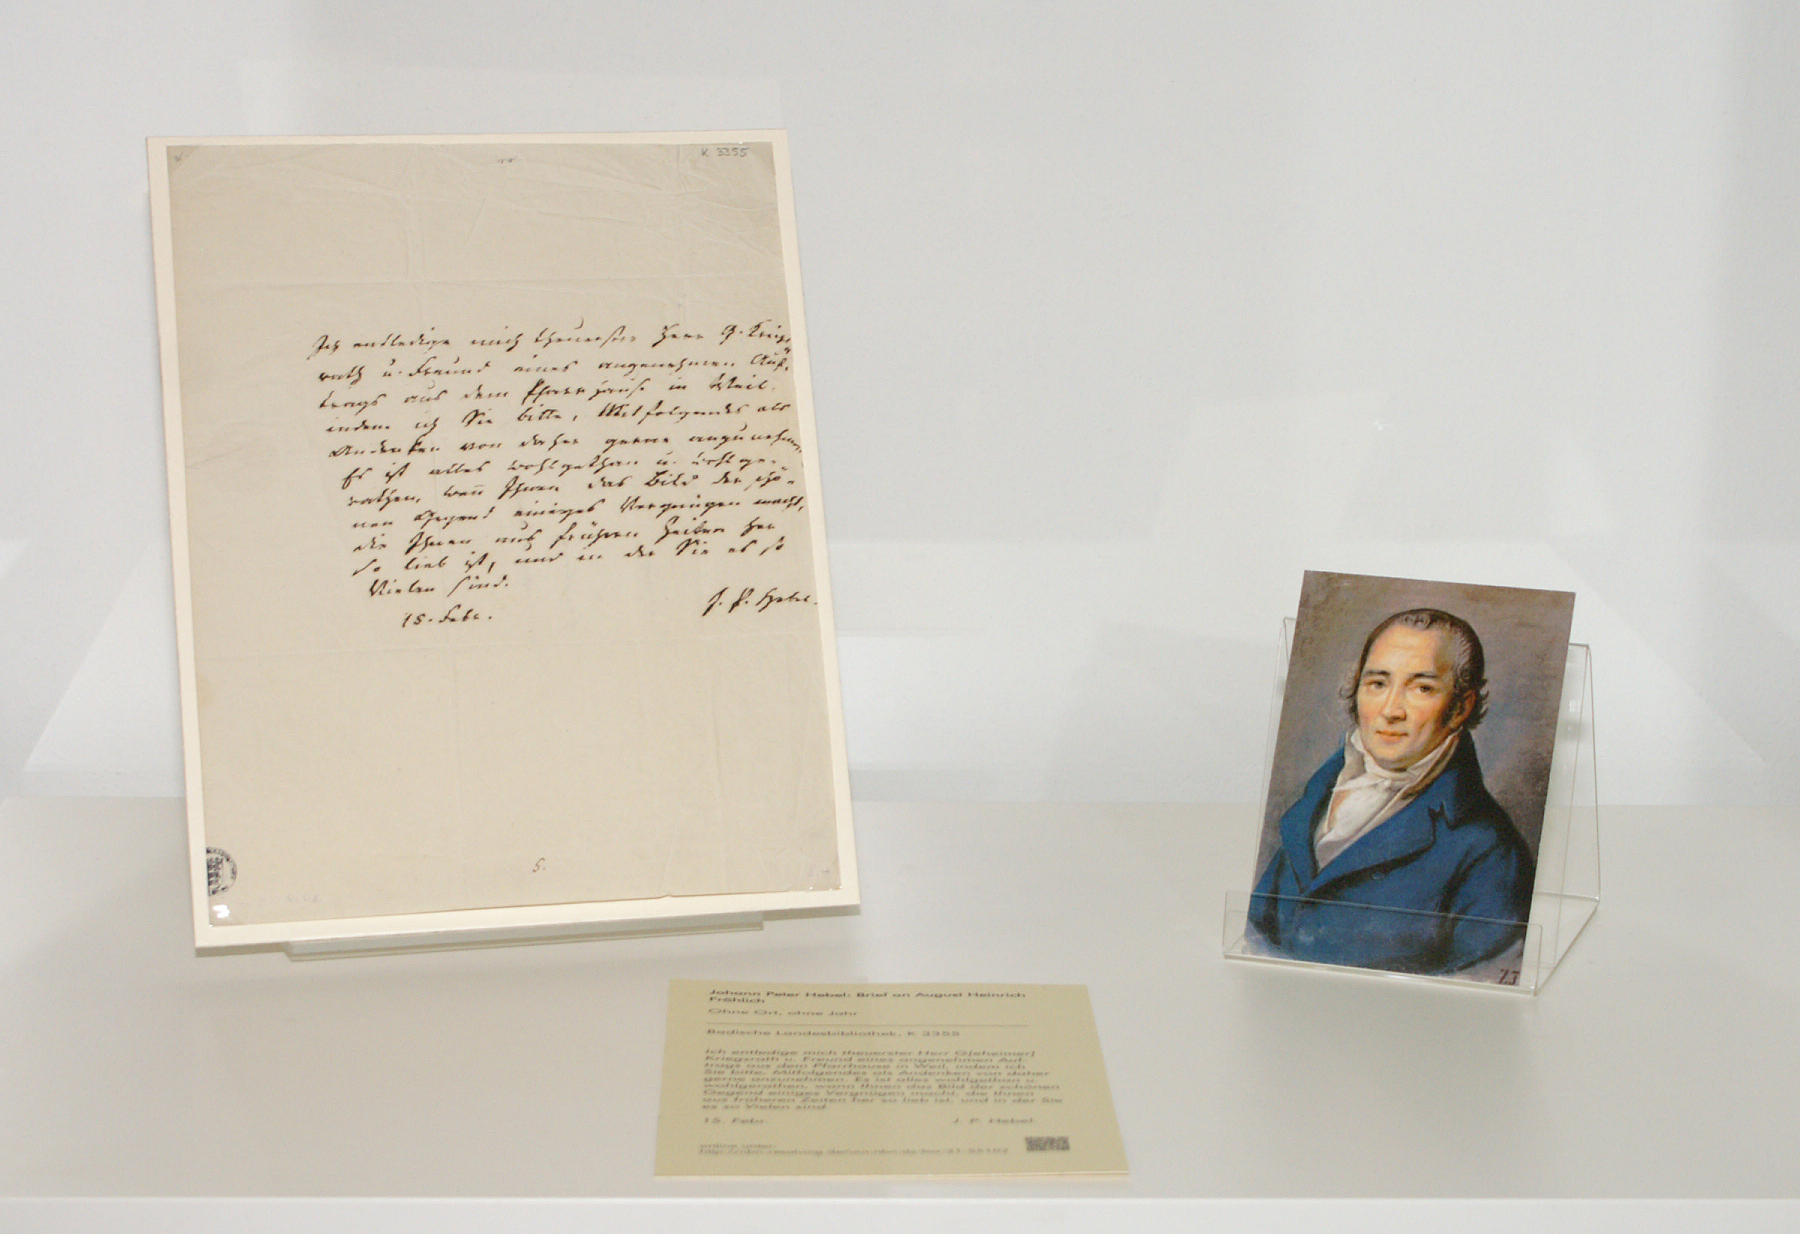 K 3355
Ich entledige mich theuerster Herr G. Kriegs-
rath u. Freund eines angenehmen Auf-
trags aus dem Pfarrhause in Weil,
indem ich Sie bitte, Mitfolgendes als
Andenken von daher gerne anzunehmen.
Es ist alles wohlgethan u. wohlge-
rathen, wen̄ Ihnen das Bild der schö-
nen Gegend einiges Vergnügen macht,
die Ihnen aus frühern Zeiten her
so lieb ist, und in der Sie es so
Vielen sind.
15. Febr. J. P. Hebel.
5.
Johann Peter Hebel: Brief an August Heinrich
Fröhlich
Ohne Ort, ohne Jahr
Badische Landesbibliothek, K 3355
Ich entledige mich theuerster Herr G[eheimer]
Kriegsrath u. Freund eines angenehmen Auf-
trags aus dem Pfarrhause in Weil, indem ich
Sie bitte, Mitfolgendes als Andenken von daher
gerne anzunehmen. Es ist alles wohlgethan u.
wohlgerathen, wenn Ihnen das Bild der schönen
Gegend einiges Vergnügen macht, die Ihnen
aus früheren Zeiten her so lieb ist, und in der Sie
es so Vielen sind.
15. Febr. J. P. Hebel
online unter: